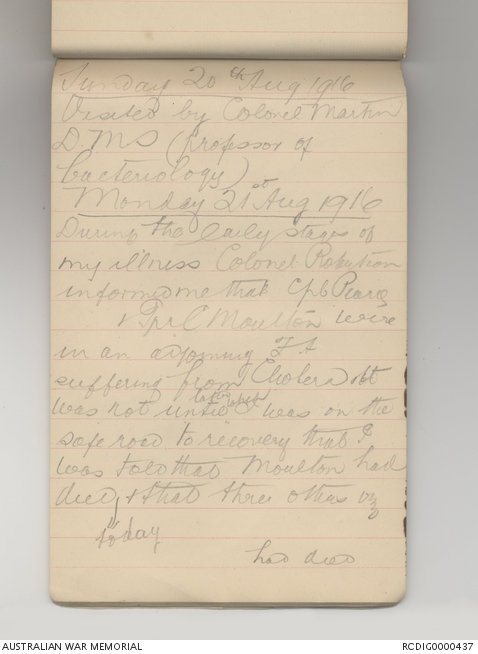 Sunday 20th Aug 1916
Visited by Colonel Martin
D.M.S (professor of
bacteriology)
Monday 21st Aug 1916
During the early stages of
my illness Colonel Robertson
informed me that Cpl Pearce
& Tpr C Moulton were
in an adjoining
suffering from Cholera It
was not until later when I was on the
safe road to recovery that I
was told that Moulton had
died & that three others viz
today
had died
AUSTRALIAN WAR MEMORIAL
RCDIG0000437